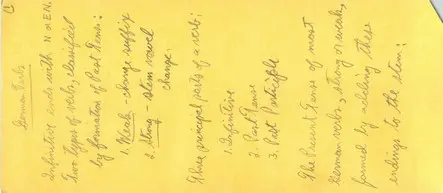 C
German Verbs
Infinitive ends with N or EN.
Two types of verbs, classified
by formation of Past Tense:
1. Weak - change suffix
2. Strong - stem vowel
change.
Three principal parts of a verb:
1. Infinitive
2. Past Tense
3. Past Participle
The Present Tense of most
German verbs, strong or weak,
formed by adding these
endings to the stem: